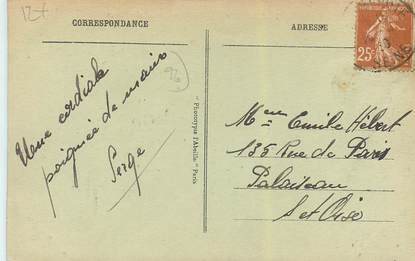 12+
CORRESPONDANCE
ADRESSE
25c
Une cordiale
poignée de mains
Serge
"Phototypie l'Abeille" Paris
Mme Emile Hébert
135 Rue de Paris
Palaiseau
S et Oise